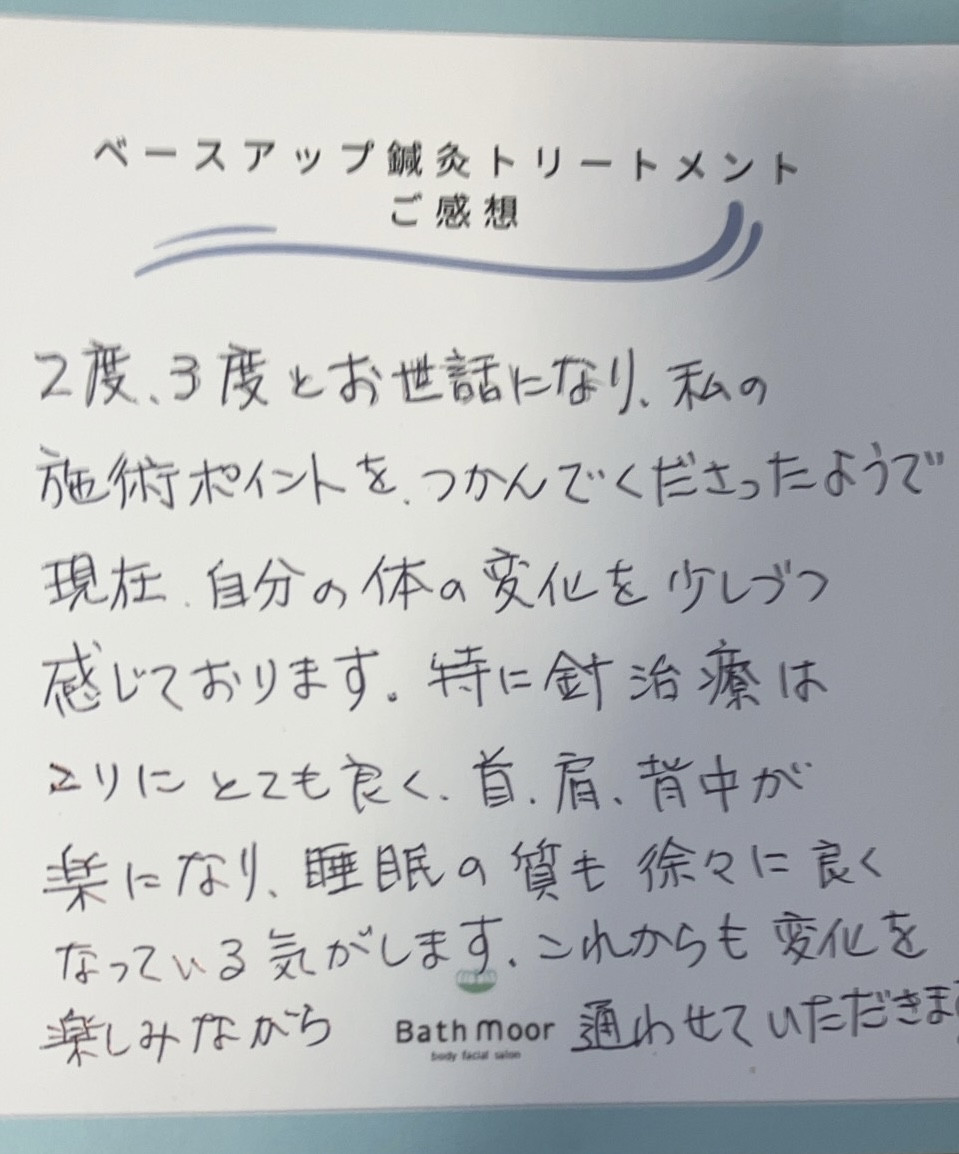 ベースアップ鍼灸トリートメント
ご感想
2度、3度とお世話になり、私の
施術ポイントを、つかんでくださったようで
現在、自分の体の変化を少しづつ
感じております。特に針治療は
こりにとても良く、首、肩、背中が
楽になり、睡眠の質も徐々に良く
なっている気がします。これからも変化を
楽しみながら 通わせていただきま
Bath moor
body facial salon